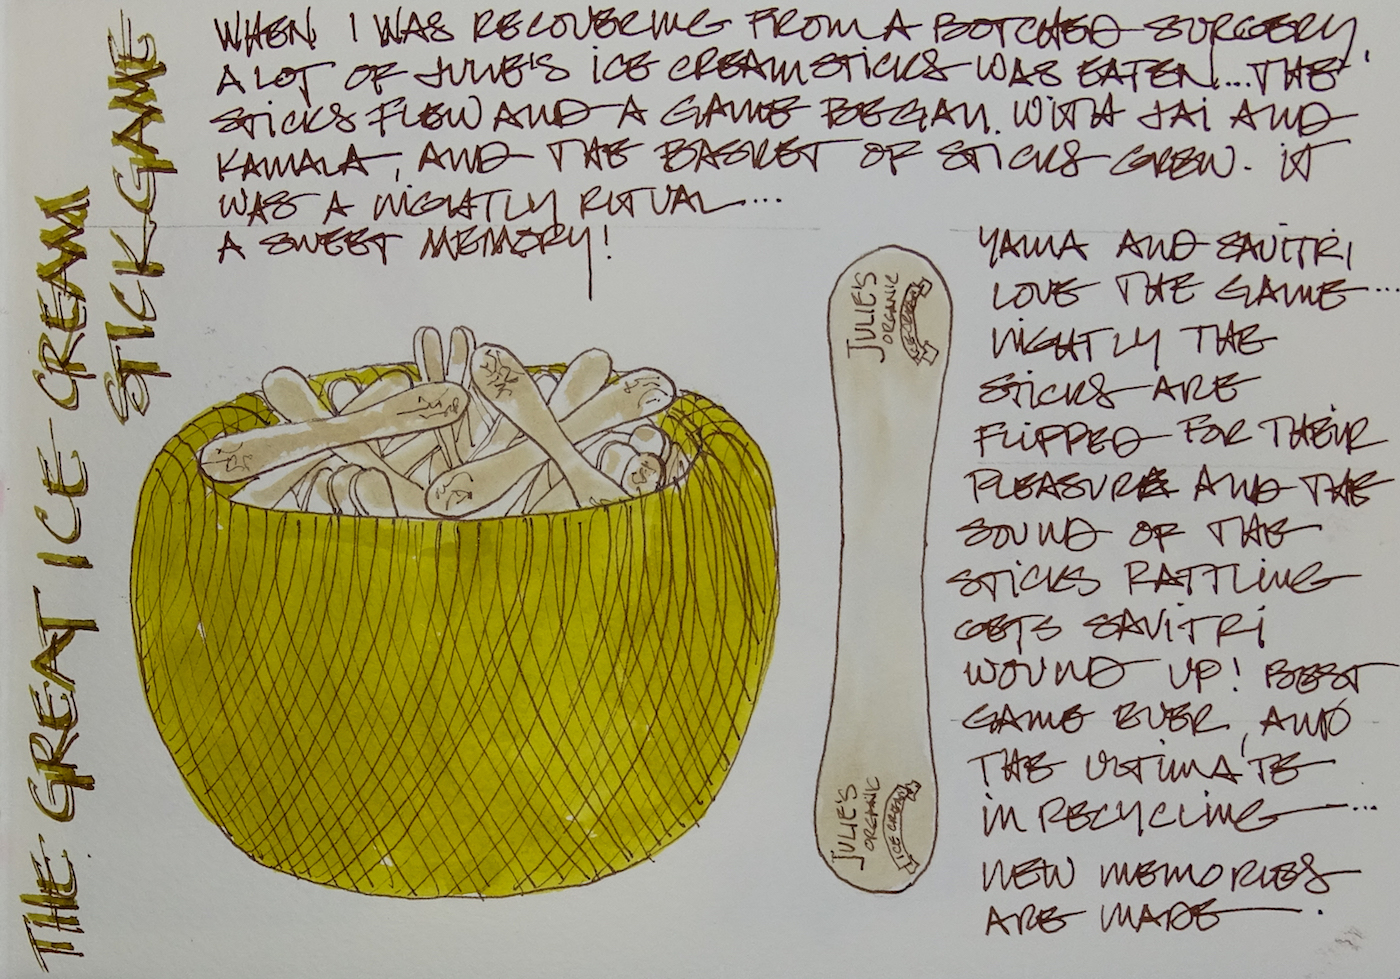 THE GREAT ICE CREAM
STICK GAME
WHEN I WAS RECOVERING FROM A BOTCHED SURGERY,
A LOT OF JULIE'S ICE CREAM STICKS WAS EATEN... THE
STICKS FLEW AND A GAME BEGAN. WITH JAI AND
KAMALA, AND THE BASKET OF STICKS GREW. IT
WAS A NIGHTLY RITUAL...
A SWEET MEMORY!
YAMA AND SAVITRI
LOVE THE GAME...
NIGHTLY THE
STICKS ARE
FLIPPED FOR THEIR
PLEASURE AND THE
SOUND OF THE
STICKS RATTLING
GETS SAVITRI
WOUND UP! BEST
GAME EVER, AND
THE ULTIMATE
IN RECYCLING...
NEW MEMORIES
ARE MADE.
JULIE'S
ORGANIC
ICE CREAM
JULIE'S
ORGANIC
ICE CREAM